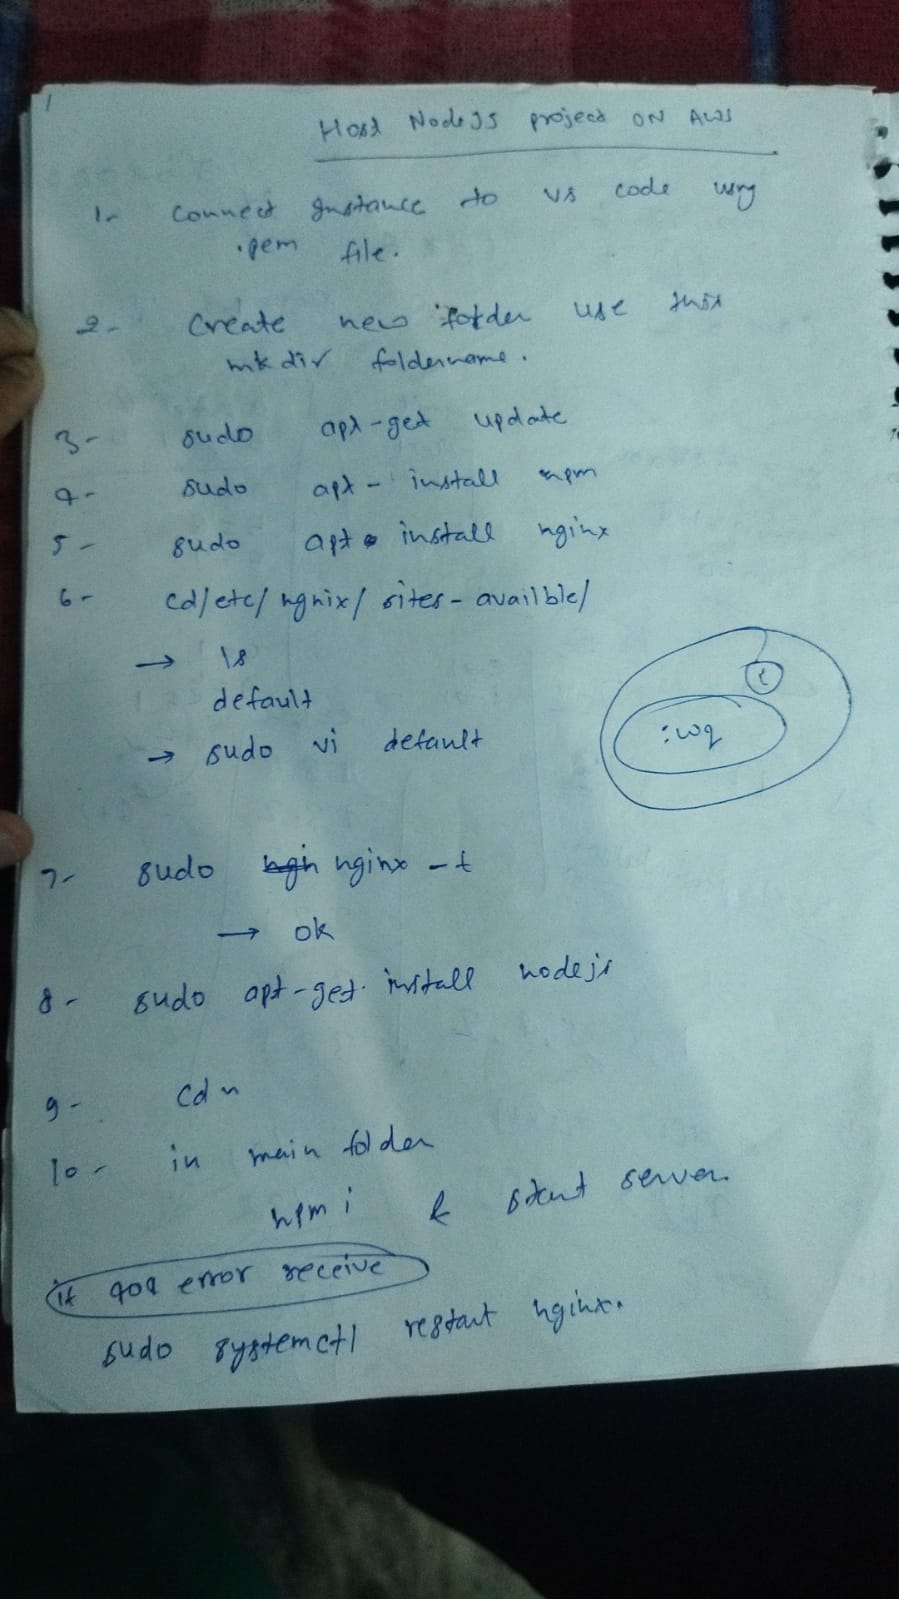 Host NodeJS project ON AWS
1- Connect Instance to VS code using
.pem file.
2- Create new folder use this
mkdir foldername.
3- sudo apt-get update
4- sudo apt- install npm
5- sudo apt install nginx
6- cd/etc/ngnix/sites-availble/
→ ls
default
→ sudo vi default
i
:wq
7- sudo nginx -t
→ ok
8- sudo apt-get install nodejs
9- cd ~
10- in main folder
npm i & start server.
if 404 error receive
sudo systemctl restart nginx.